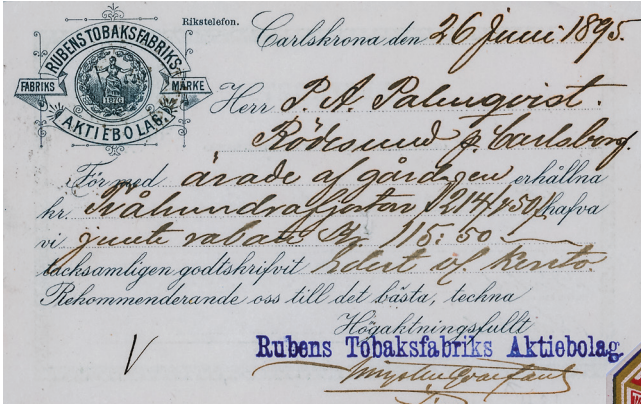 Rikstelefon.
RUBENS TOBAKSFABRIKS-
FABRIKS MÄRKE
AKTIEBOLAG.
Carlskrona den 26 Juni 1895.
Herr P. A. Palmqvist.
Rödesund p. Carlsborg.
För med ärade af gårdagen erhållna
kr. Tvåhundrafjorton hafva
vi jemte rabatt Kr 115:50
tacksamligen godtskrifvit Edert konto.
Rekommenderande oss till det bästa, teckna
Högaktningsfullt
Rubens Tobaksfabriks Aktiebolag.